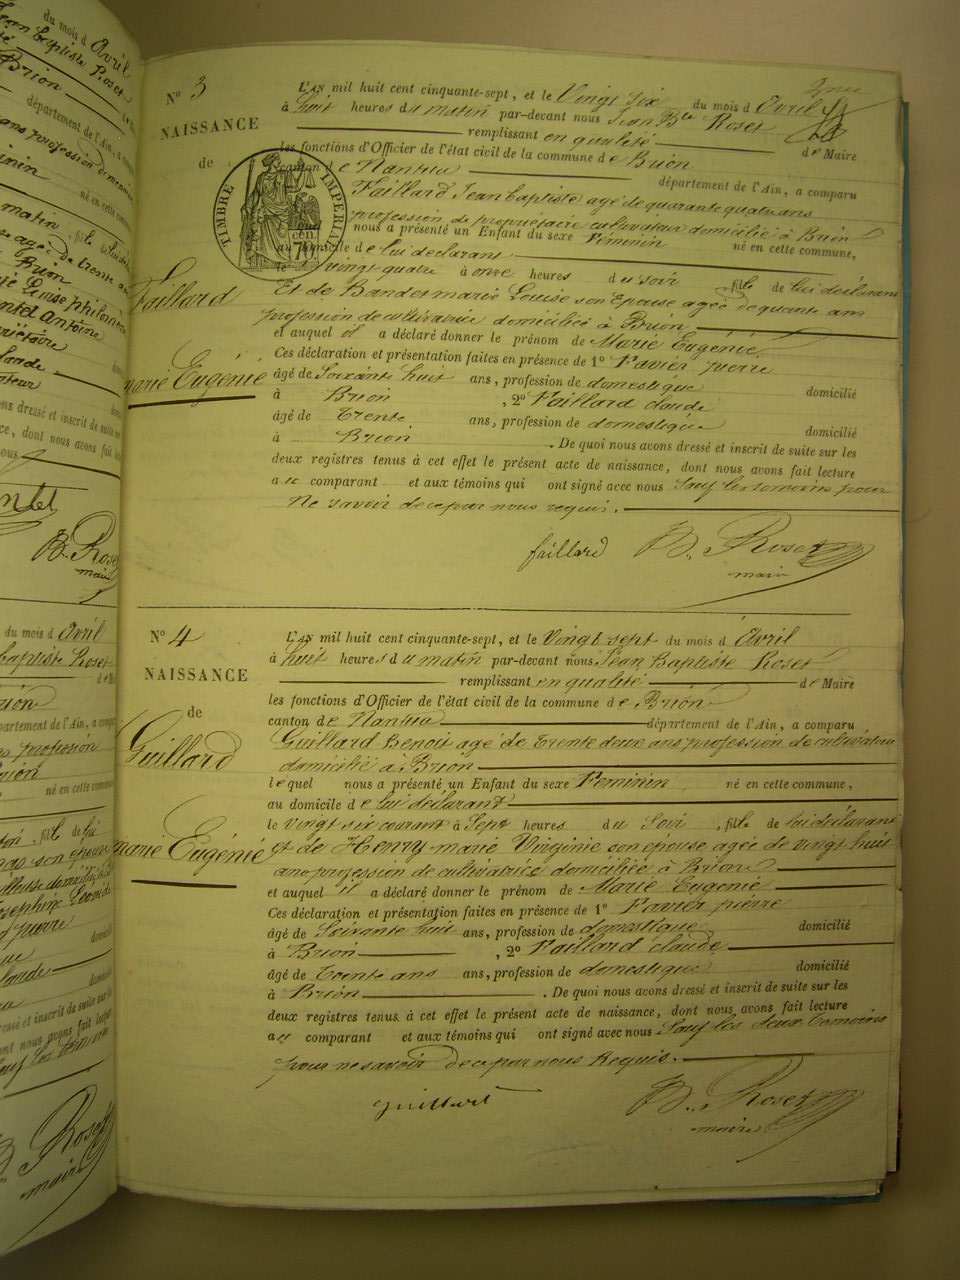 du mois d Avril
Jean Baptiste Roset
Brion
département de l'Ain, a comparu
né en cette commune
matin
Brion
Louise philo
ntet antoine
Claude
dressé et inscrit de suite
dont nous avons fait
B. Roset
maire
du mois d Avril
Baptiste Roset
de Maire
département de l'Ain, a comparu
profession
né en cette commune
fille de lui
son épouse
domicilié
Josephine
domicilié
dressé et inscrit de suite sur
nous avons fait lecture
B. Roset
maire
N° 3
NAISSANCE
de
Faillard
Marie Eugénie
TIMBRE IMPERIAL
70 cen.
L'AN mil huit cent cinquante-sept, et le Vingt Six du mois d Avril
à huit heures du matin par-devant nous Jean Bte Roset
remplissant en qualité de Maire
les fonctions d'Officier de l'état civil de la commune de Brion
canton de Nantua département de l'Ain, a comparu
Faillard Jean baptiste agé de quarante quatre ans
profession de propriétaire cultivateur domicilié à Brion
nous a présenté un Enfant du sexe Féminin né en cette commune,
au domicile de lui declarant
le vingt quatre à onze heures du soir fille de lui declarant
Et de Bandet marie Louise son Epouse agée de quarante ans
profession de cultivatrice domiciliée à Brion
et auquel il a déclaré donner le prénom de Marie Eugenie.
Ces déclaration et présentation faites en présence de 1° Favier pierre
âgé de Soixante huit ans, profession de domestique domicilié
à Brion , 2° Faillard claude
âgé de Trente ans, profession de domestique domicilié
à Brion . De quoi nous avons dressé et inscrit de suite sur les
deux registres tenus à cet effet le présent acte de naissance, dont nous avons fait lecture
au comparant et aux témoins qui ont signé avec nous Sauf les temoins pour
Ne savoir de ce par nous requis.
faillard B. Roset
maire
N° 4
NAISSANCE
de
Guillard
Marie Eugénie
L'AN mil huit cent cinquante-sept, et le Vingt sept du mois d Avril
à huit heures du matin par-devant nous Jean Baptiste Roset
remplissant en qualité de Maire
les fonctions d'Officier de l'état civil de la commune de Brion
canton de Nantua département de l'Ain, a comparu
Guillard Benoit agé de trente deux ans profession de cultivateur
domicilié a Brion
lequel nous a présenté un Enfant du sexe Feminin né en cette commune,
au domicile de lui déclarant
le vingt six courant à Sept heures du Soir , fille de lui déclarant
et de Henry marie Virginie son epouse agée de vingt huit
ans profession de cultivatrice domiciliée à Brion
et auquel il a déclaré donner le prénom de Marie Eugenie
Ces déclaration et présentation faites en présence de 1° Favier pierre
âgé de Soixante huit ans, profession de domestique domicilié
à Brion , 2° Faillard claude
âgé de Trente ans ans, profession de domestique domicilié
à Brion . De quoi nous avons dressé et inscrit de suite sur les
deux registres tenus à cet effet le présent acte de naissance, dont nous avons fait lecture
au comparant et aux témoins qui ont signé avec nous Sauf les deux temoins
pour ne savoir de ce par nous Requis.
guillard B. Roset
maire